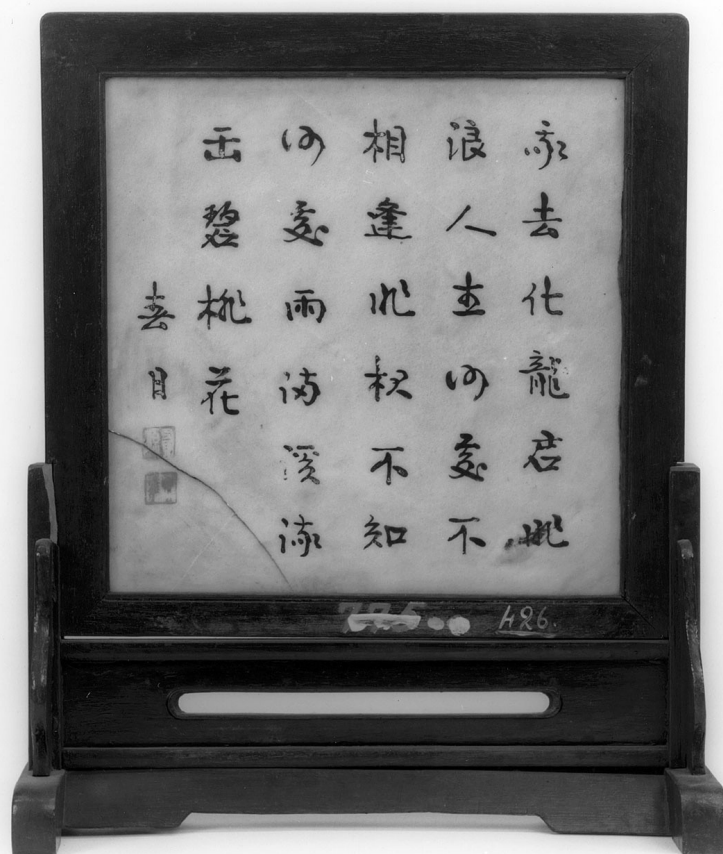 去化龍桃
浪人生何處不
相逢秋不知
何處雨滿溪流
出碧桃花
春月
426.